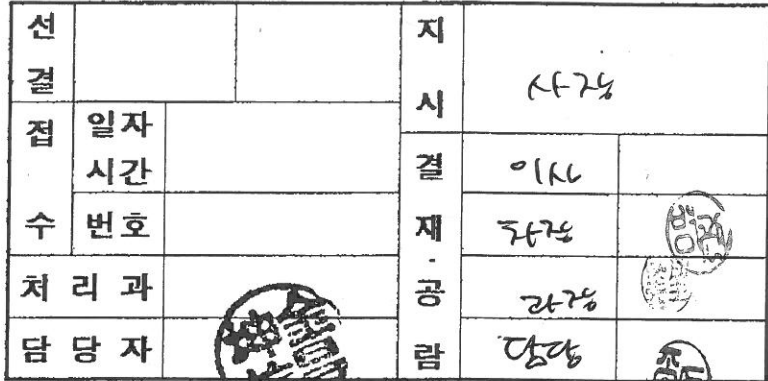 선결
지시
사장
접수
일자
시간
결재·공람
이사
번호
차장
처리과
과장
담당자
담당